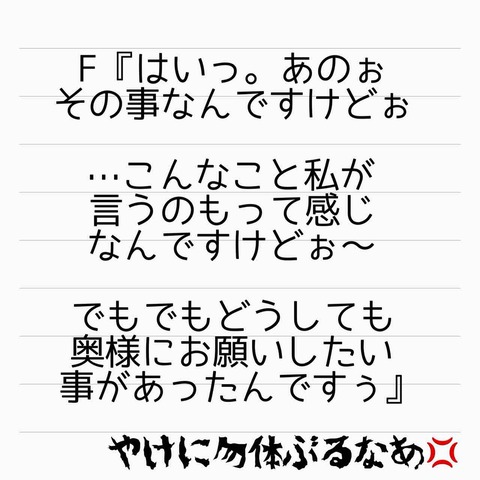 F『はいっ。あのぉ
その事なんですけどぉ
…こんなこと私が
言うのもって感じ
なんですけどぉ～
でもでもどうしても
奥様にお願いしたい
事があったんですぅ』
やけに勿体ぶるなあ💢